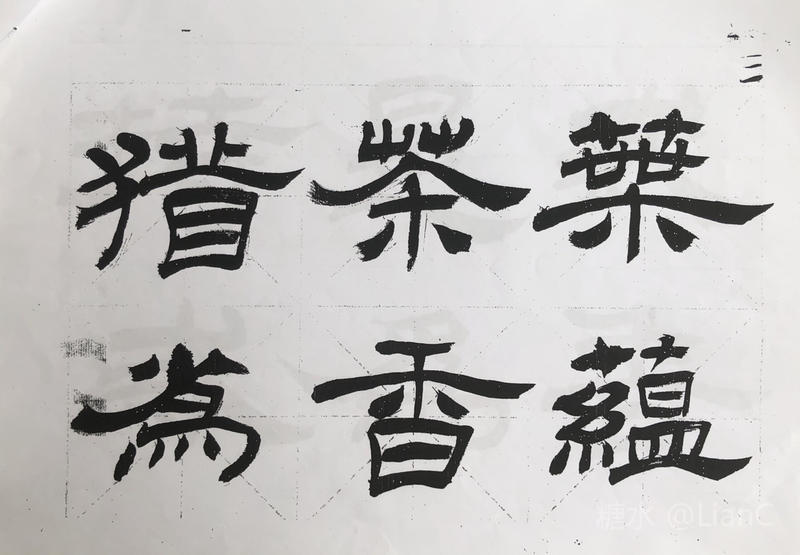 三
葉蘊
茶香
猎為
糖水 @LianC